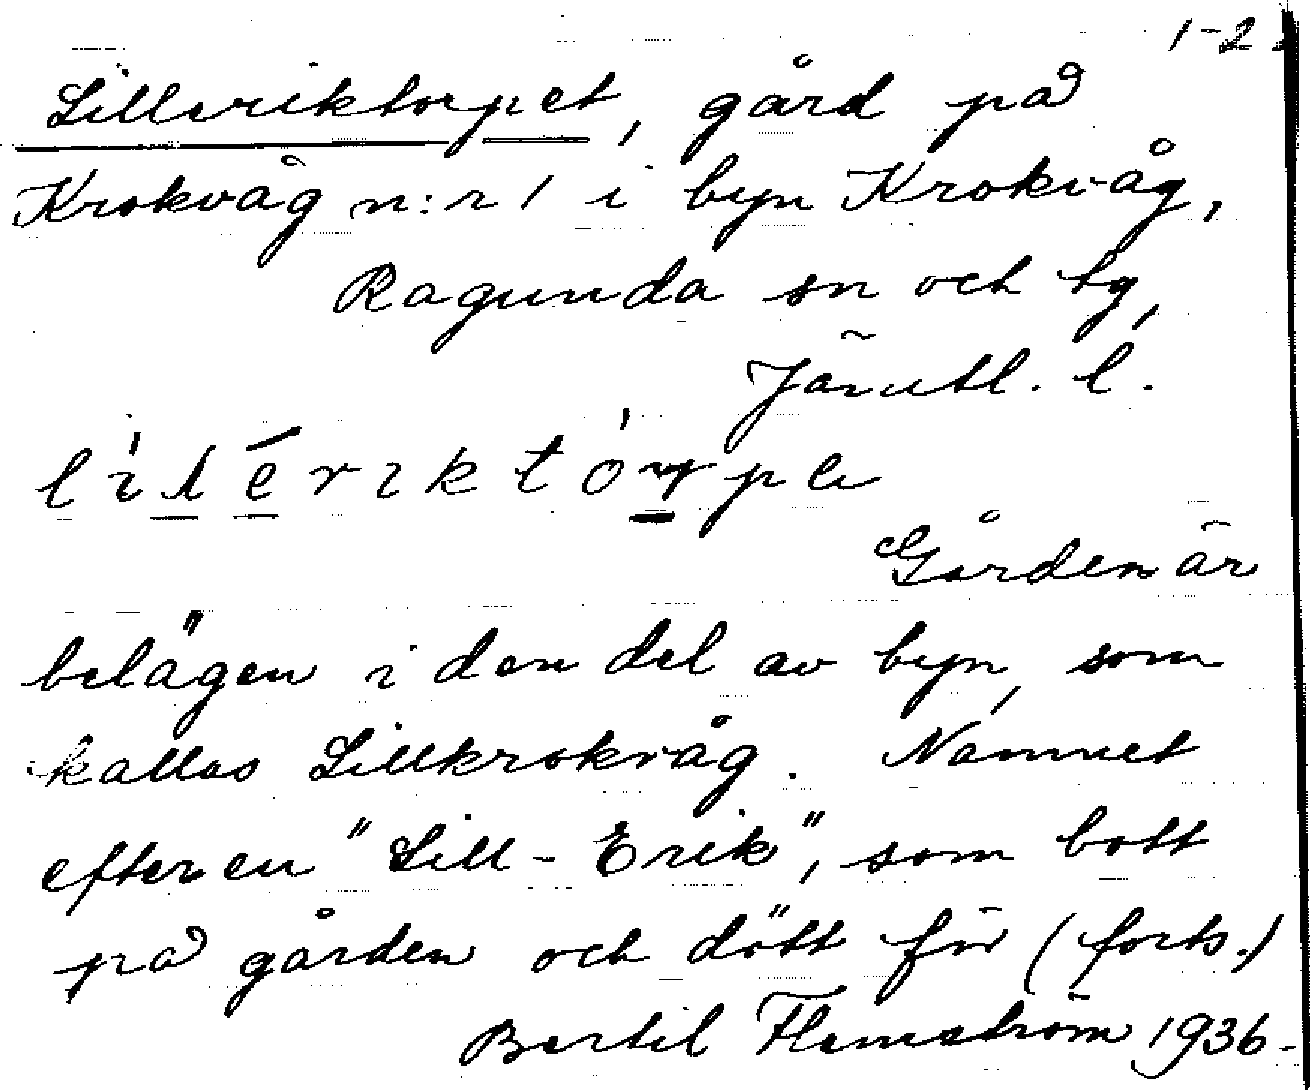 1-2
Lilleriktorpet, gård på
Krokvåg n:r 1 i byn Krokvåg,
Ragunda sn och tg,
Jämtl. l.
Gården är
belägen i den del av byn, som
kallas Lillkrokvåg. Namnet
efter en "Lill-Erik", som bott
på gården och dött för (forts.)
Bertil Flemström 1936.